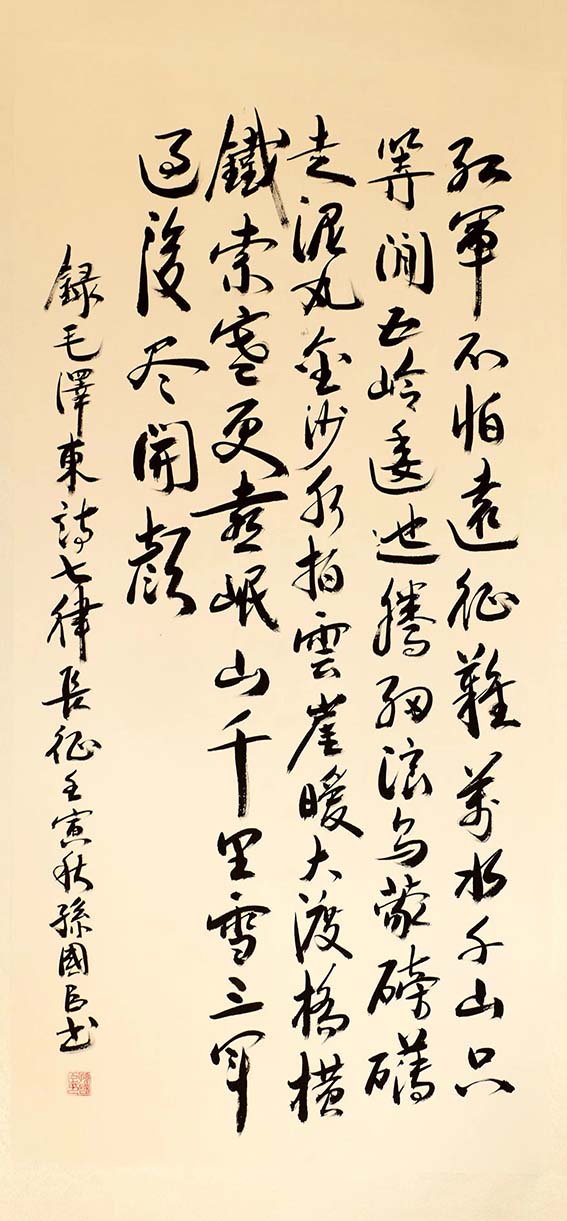 紅軍不怕遠征難萬水千山只
等閒五岭逶迤騰細浪烏蒙磅礴
走泥丸金沙水拍雲崖暖大渡橋橫
鐵索寒更喜岷山千里雪三軍
過後尽開顏
録毛澤東詩七律長征壬寅秋孫國民书